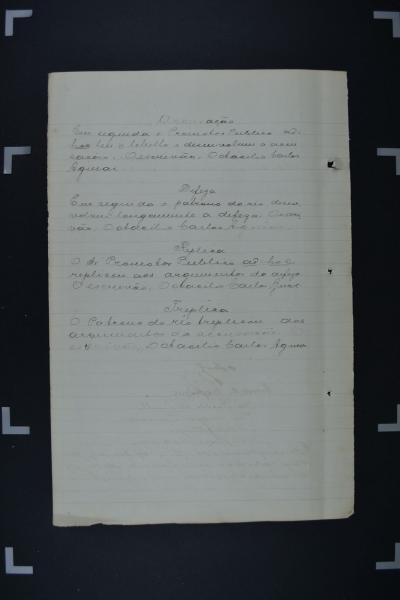 Accusação
Em seguida o Promotor Publico ad-
hoc leu o libello e desenvolveu a accu
sação. O escrivão, Octacilio Carlos
Aguiar
Defeza
Em seguida o patrono do réo desen
volveu longamente a defeza. O escri
vão, Octacilio Carlos Aguiar
Replica
O Sr Promotor Publico ad-hoc
replicou aos argumentos da defeza
O escrivão, Octacilio Carlos Aguiar
Treplica
O Patrono do réo treplicou aos
argumentos da accusação. O
escrivão, Octacilio Carlos Aguiar